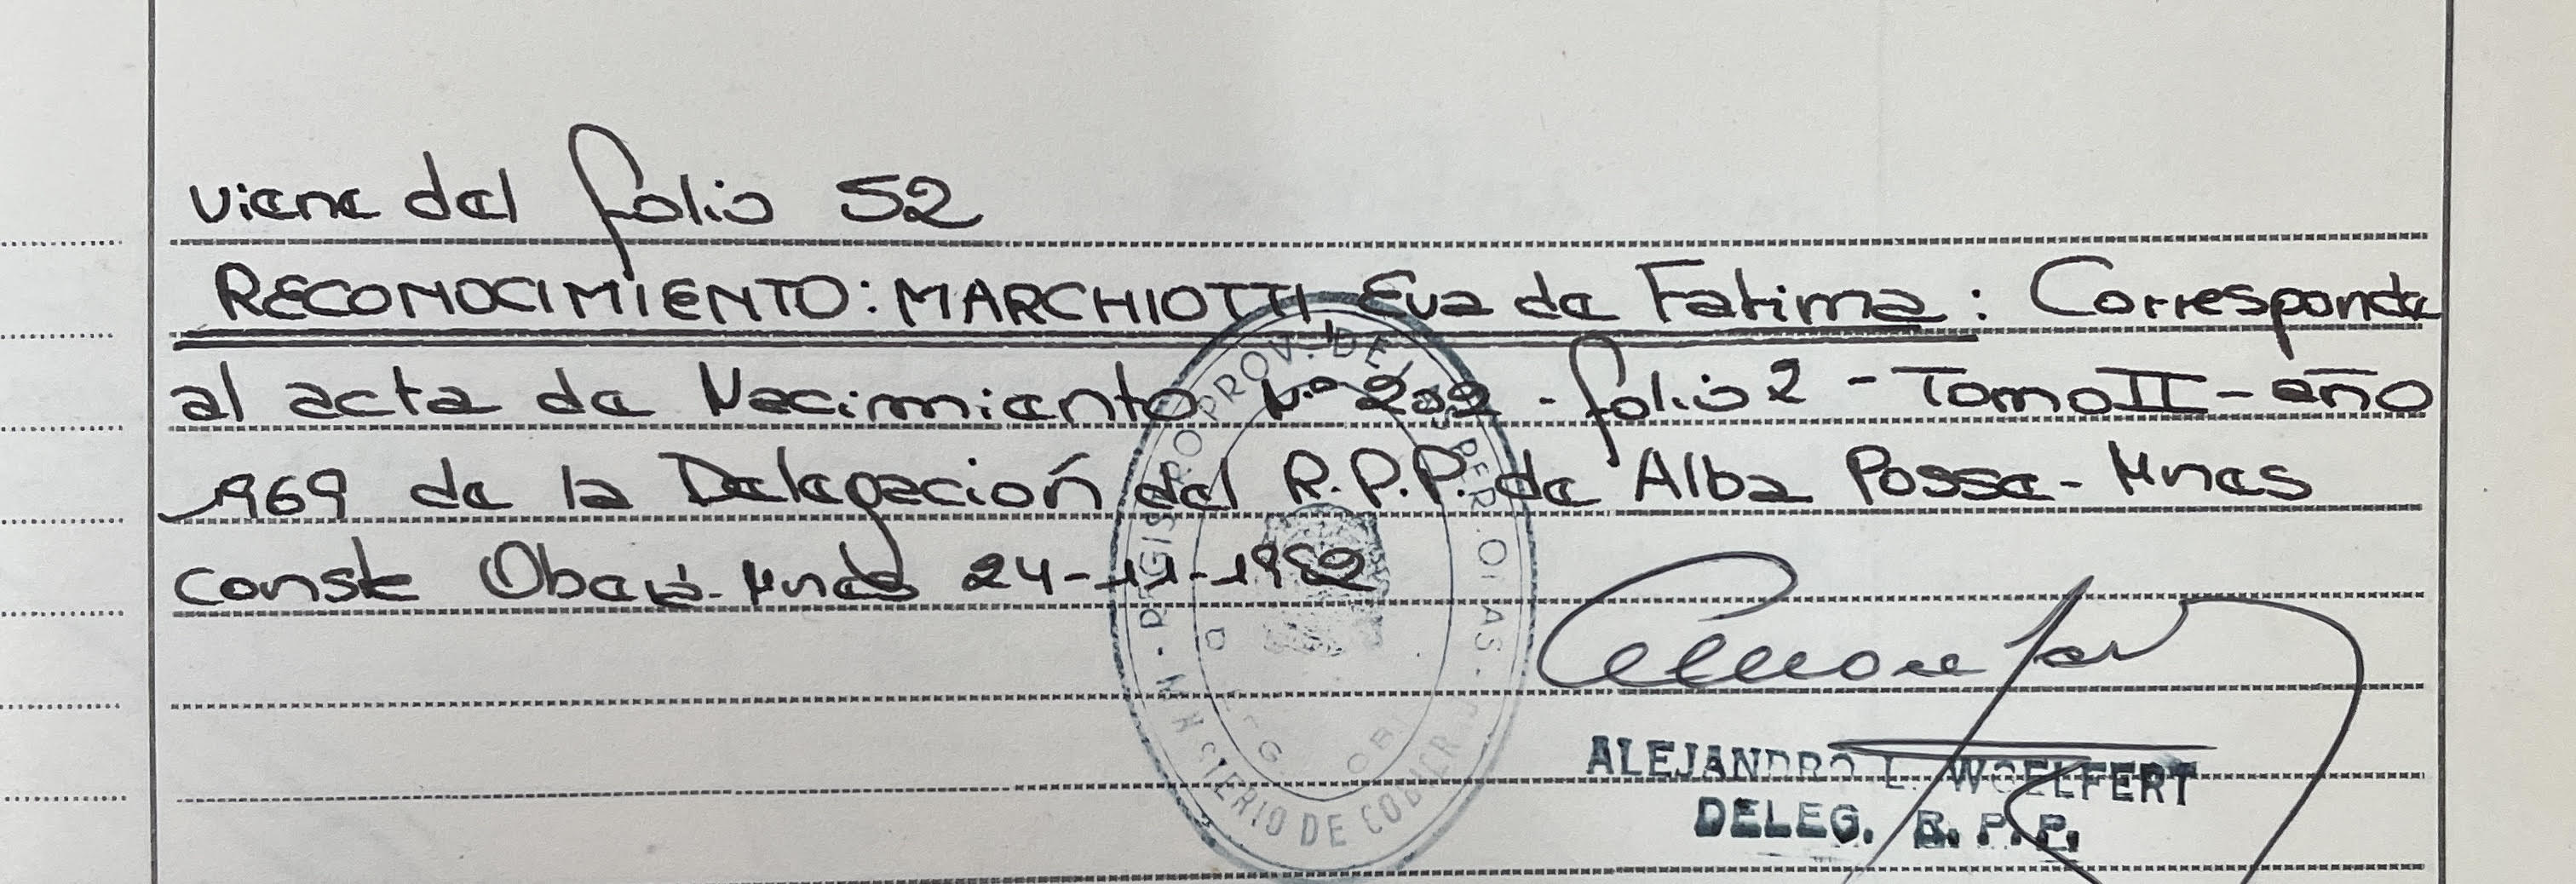 viene del folio 52
RECONOCIMIENTO: MARCHIOTTI Eva de Fatima: Corresponde
al acta de Nacimiento N.º 202 - folio 2 - Tomo II - año
1969 de la Delegación del R.P.P. de Alba Posse - Mnes
conste Oberá - Mnes 24-11-1982
REGISTRO PROV. DE LAS PER
MINISTERIO DE GOBIER
ALEJANDRO L. WOELFERT
DELEG. R. P. P.